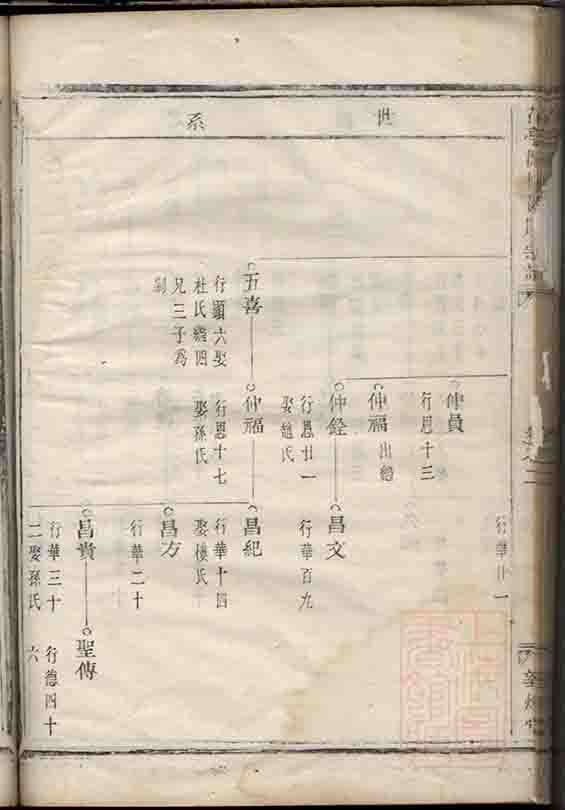 世系
行華廿一
仲員
行恩十三
仲福
出繼
仲銓
行恩廿一
娶趙氏
昌文
行華百九
五喜
行顯六娶
杜氏繼四
兄三子爲
嗣
仲福
行恩十七
娶孫氏
昌紀
行華十四
娶樓氏
昌方
行華二十
昌貴
行華三十
二娶孫氏
聖傳
行德四十
六